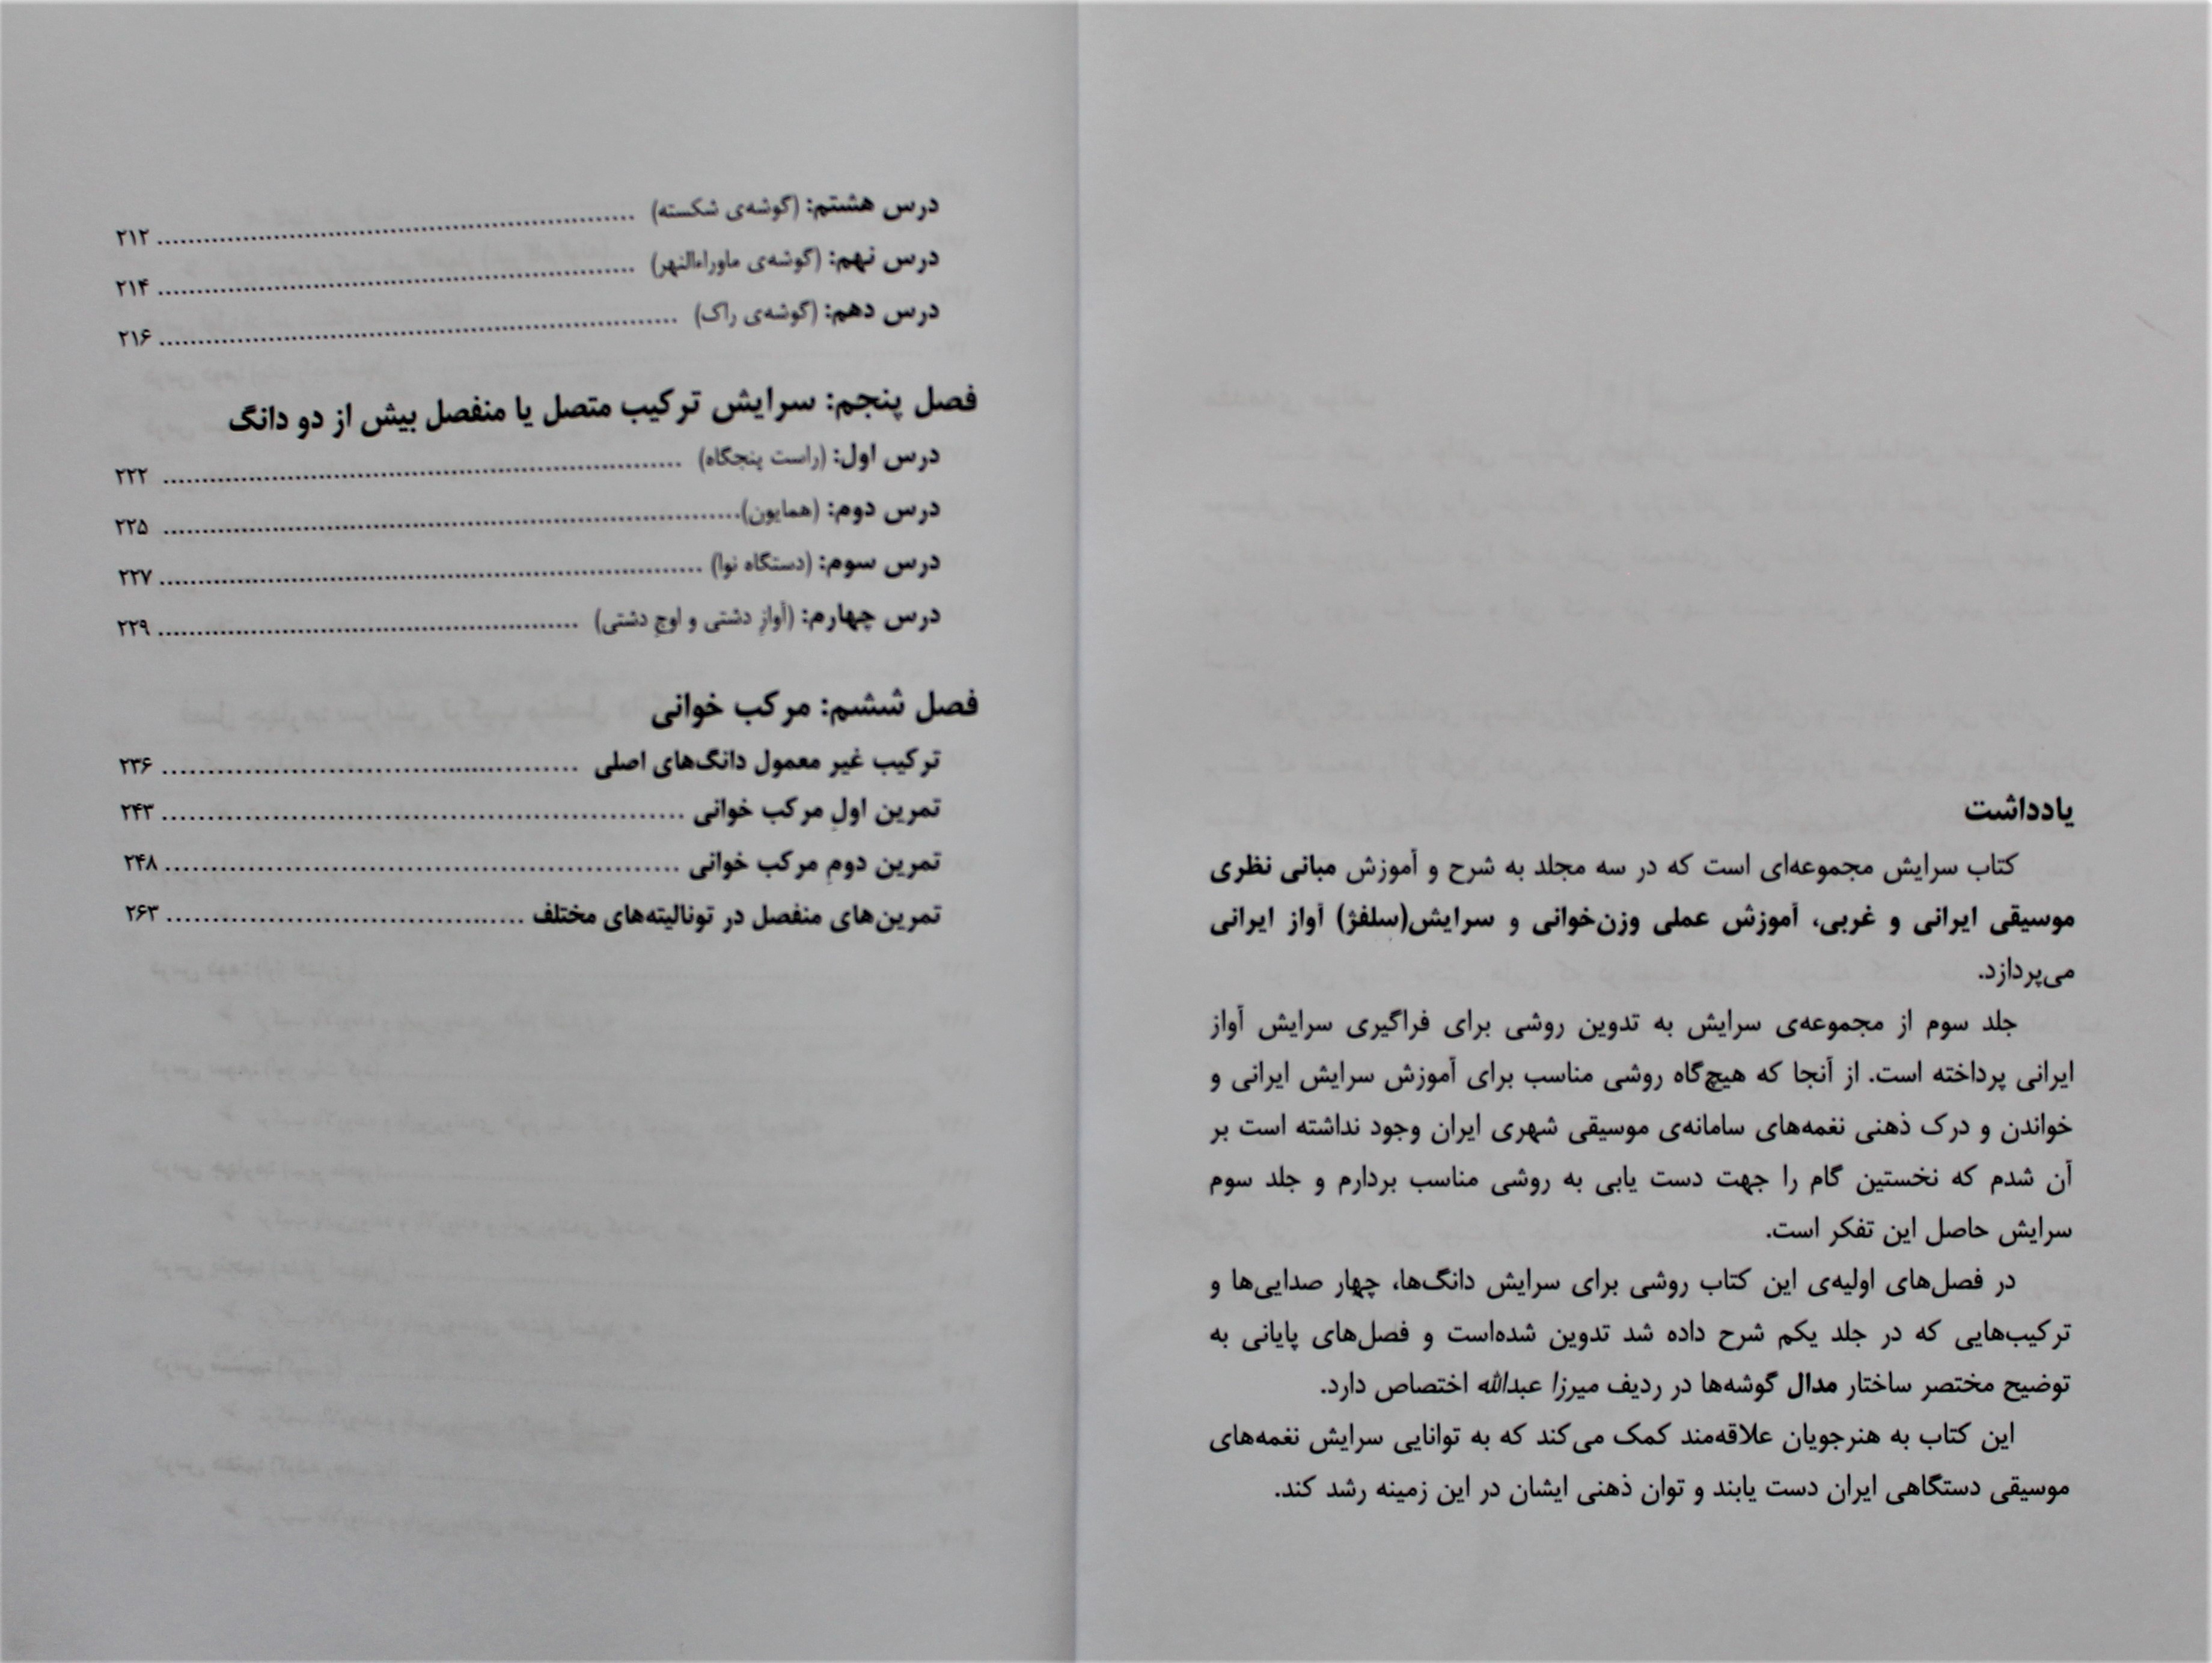 یادداشت
کتاب سرایش مجموعه‌ای است که در سه مجلد به شرح و آموزش مبانی نظری
موسیقی ایرانی و غربی، آموزش عملی وزن‌خوانی و سرایش(سلفژ) آواز ایرانی
می‌پردازد.
جلد سوم از مجموعه‌ی سرایش به تدوین روشی برای فراگیری سرایش آواز
ایرانی پرداخته است. از آنجا که هیچ‌گاه روشی مناسب برای آموزش سرایش ایرانی و
خواندن و درک ذهنی نغمه‌های سامانه‌ی موسیقی شهری ایران وجود نداشته است بر
آن شدم که نخستین گام را جهت دست یابی به روشی مناسب بردارم و جلد سوم
سرایش حاصل این تفکر است.
در فصل‌های اولیه‌ی این کتاب روشی برای سرایش دانگ‌ها، چهار صدایی‌ها و
ترکیب‌هایی که در جلد یکم شرح داده شد تدوین شده‌است و فصل‌های پایانی به
توضیح مختصر ساختار مدال گوشه‌ها در ردیف میرزا عبدالله اختصاص دارد.
این کتاب به هنرجویان علاقه‌مند کمک می‌کند که به توانایی سرایش نغمه‌های
موسیقی دستگاهی ایران دست یابند و توان ذهنی ایشان در این زمینه رشد کند.
درس هشتم: (گوشه‌ی شکسته) ........................ ۲۱۲
درس نهم: (گوشه‌ی ماوراءالنهر) ........................ ۲۱۴
درس دهم: (گوشه‌ی راک) ........................ ۲۱۶
فصل پنجم: سرایش ترکیب متصل یا منفصل بیش از دو دانگ
درس اول: (راست پنجگاه) ........................ ۲۲۲
درس دوم: (همایون)........................ ۲۲۵
درس سوم: (دستگاه نوا) ........................ ۲۲۷
درس چهارم: (آوازِ دشتی و اوجِ دشتی) ........................ ۲۲۹
فصل ششم: مرکب خوانی
ترکیب غیر معمول دانگ‌های اصلی ........................ ۲۳۶
تمرین اولِ مرکب خوانی ........................ ۲۴۳
تمرین دومِ مرکب خوانی ........................ ۲۴۸
تمرین‌های منفصل در تونالیته‌های مختلف ........................ ۲۶۳